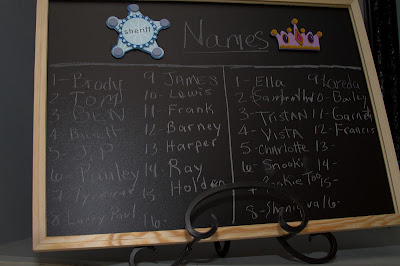 sheriff
Names
1- Brody
2- TOM
3- BEN
4-
5- J.P.
6-
7-
8- Larry Paul
9- JAMES
10- Lewis
11- Frank
12- Barney
13- Harper
14- Ray
Holden
15-
16-
1- Ella
2-
3- TRISTAN
4- VISTA
5- Charlotte
6- Snooki
7- Too
8-
9- Loreda
10- Bailey
11- Garnet
12- Francis
13-
14-
15-
16-